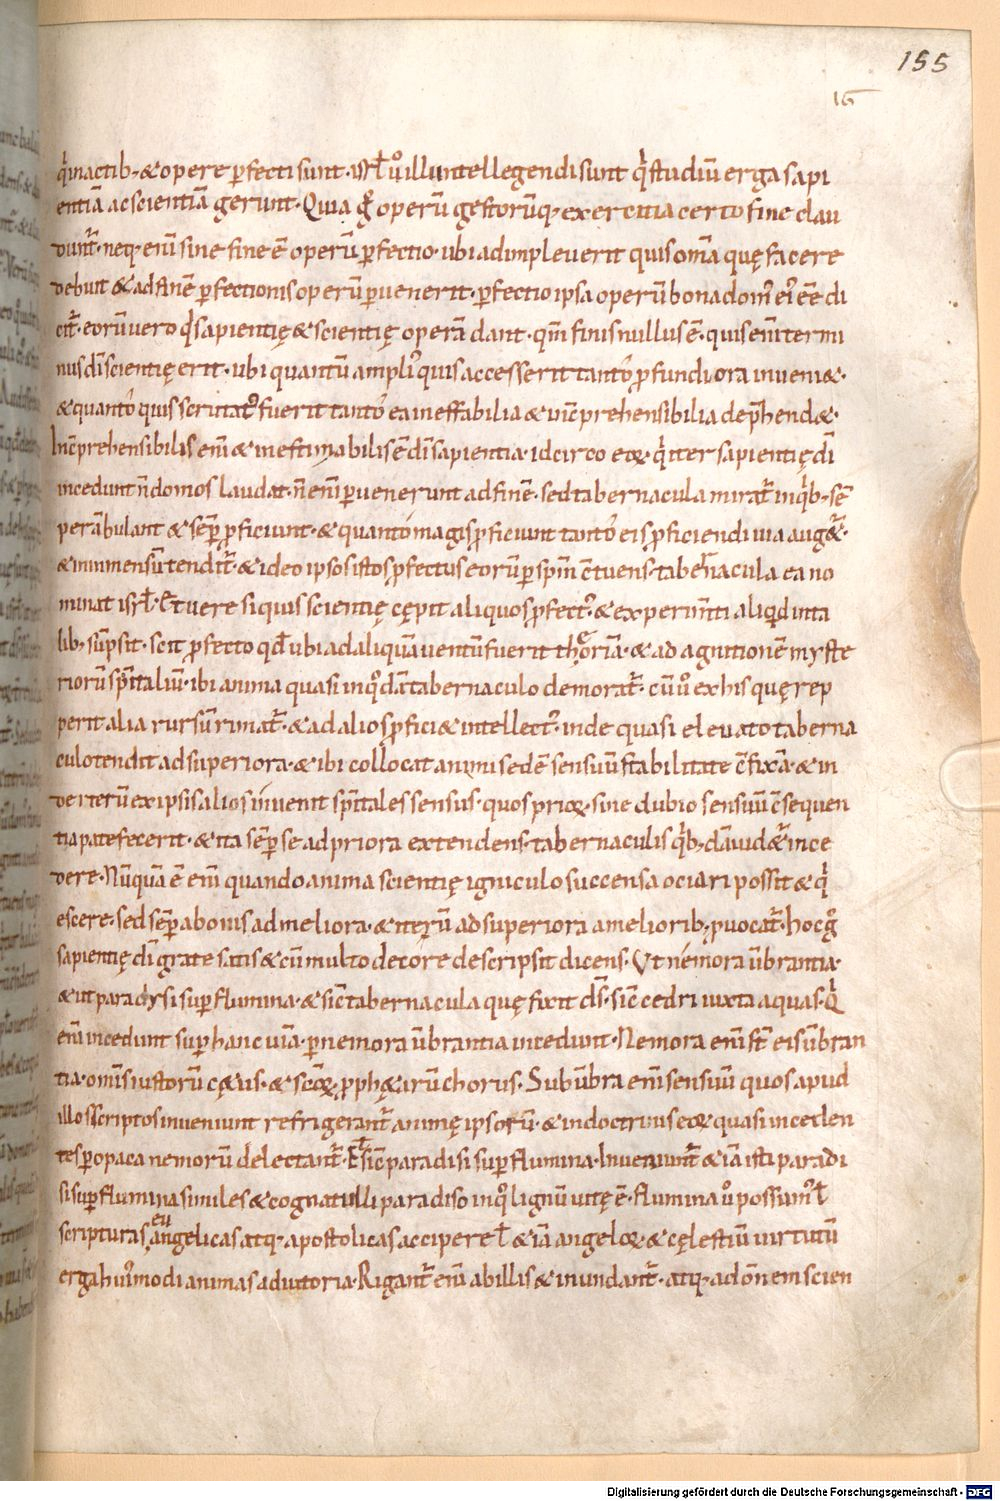 155
16
q̓inactib; & opere ꝑfecti sunt. isrl̄ ů illi intellegendi sunt q̓ studiū erga sapi
entiā ac scientiā gerunt. Quia operū gestorūq; exercitia certo fine clau
dunt᷑. neq; eni᷑ sine fine ē operū ꝑfectio. ubi adimpleverit quis om̄a quę facere
debuit & ad finē ꝑfectionis operū ꝑvenerit. ꝑfectio ipsa operū bona dom᷒ ei᷒ eē di
cit᷑. eorū vero q̓ sapientię & scientię operā dant. qm̄ finis nullus ē. quis eni᷑ termi
nus dī scientię erit. ubi quantū ampli᷒ quis accesserit tanto᷒ ꝓfundiora inveni&.
& quanto᷒ quis scrutat᷒ fuerit tanto᷒ ea ineffabilia & incōprehensibilia dep̄hend&.
Incōprehensibilis eni᷑ & inestimabilis ē dī sapientia. idcirco eoꝝ q̓ iter sapientię dī
incedunt n̄ domos laudat. n̄ eni᷑ ꝑvenerunt ad finē. sed tabernacula mirat᷑ in q̓b; sēꝑ
perābulant & sēꝑ ꝓficiunt. & quanto᷒ magis ꝓficiunt tanto᷒ eis ꝓficiendi via auget᷑.
& in inmensū tendit᷑. & ideo ipsos istos ꝓfectus eorū ꝑ spm̄ cōtuens. tabernacula ea no
minat isrl̄. Et vere si quis scientię cępit aliquos ꝓfect᷒. & experim̄ti aliquid in ta
lib; sūpsit. scit ꝓfecto qd̄ ubi ad aliquā ventū fuerit theoriā. & ad agnitionē myste
riorū sp̄italiū. ibi anima quasi in quodā tabernaculo demorat᷑. cū ů ex his quę rep
perit alia rursū rimat᷑. & ad alios ꝓficiet intellect᷒. inde quasi elevato taberna
culo tendit ad superiora. & ibi collocat animi sedē sensuū stabilitate cōfixā. & in
de iterū ex ipsis alios invenit sp̄itales sensus. quos prioꝝ. sine dubio sensuū cōsequen
tia patefecerit. & ita sēꝑ se ad priora extendens. tabernaculis q̓b;dā videt᷑ ince
dere. Nūquā ē eni᷑ quando anima scientię igniculo succensa ociari possit & q̓
escere. sed sēꝑ a bonis ad meliora. & iterū ad superiora a meliorib; ꝓvocat᷑. hoc
sapientię dī grate satis & cū multo decore descripsit dicens. Ut nemora ūbrantia.
& ut paradysi suꝑ flumina. & sic̄ tabernacula quę fixit dn̄s. sic̄ cedri iuxta aquas. Q̓
eni᷑ incedunt suꝑ hanc viā. ꝑ nemora ūbrantia incedunt. Nemora eni᷑ st̄ eis ūbran
tia. omīs iustorū cętus. & scōꝝ. ꝓphętarū chorus. Sub ūbra eni᷑ sensuū quos apud
illos scriptos inveniunt refrigerant᷑ animę ipsorū. & in doctrinis eoꝝ quasi inceden
tes ꝑ opaca nemorū delectant᷑. Et sic̄ paradisi suꝑ flumina. Inveniunt᷑ & iā isti paradi
si suꝑ flumina similes & cognati illi paradiso in q̊ lignū vitę ē. flumina ů possum᷒ l̄
scripturas euangelicas atq; apostolicas accipere l̄ & iā angeloꝝ. & cęlestiū virtutū
erga hui᷒modi animas adiutoria. Rigant᷑ eni᷑ ab illis & inundant᷑. atq; ad ōnem scien
Digitalisierung gefördert durch die Deutsche Forschungsgemeinschaft - DFG